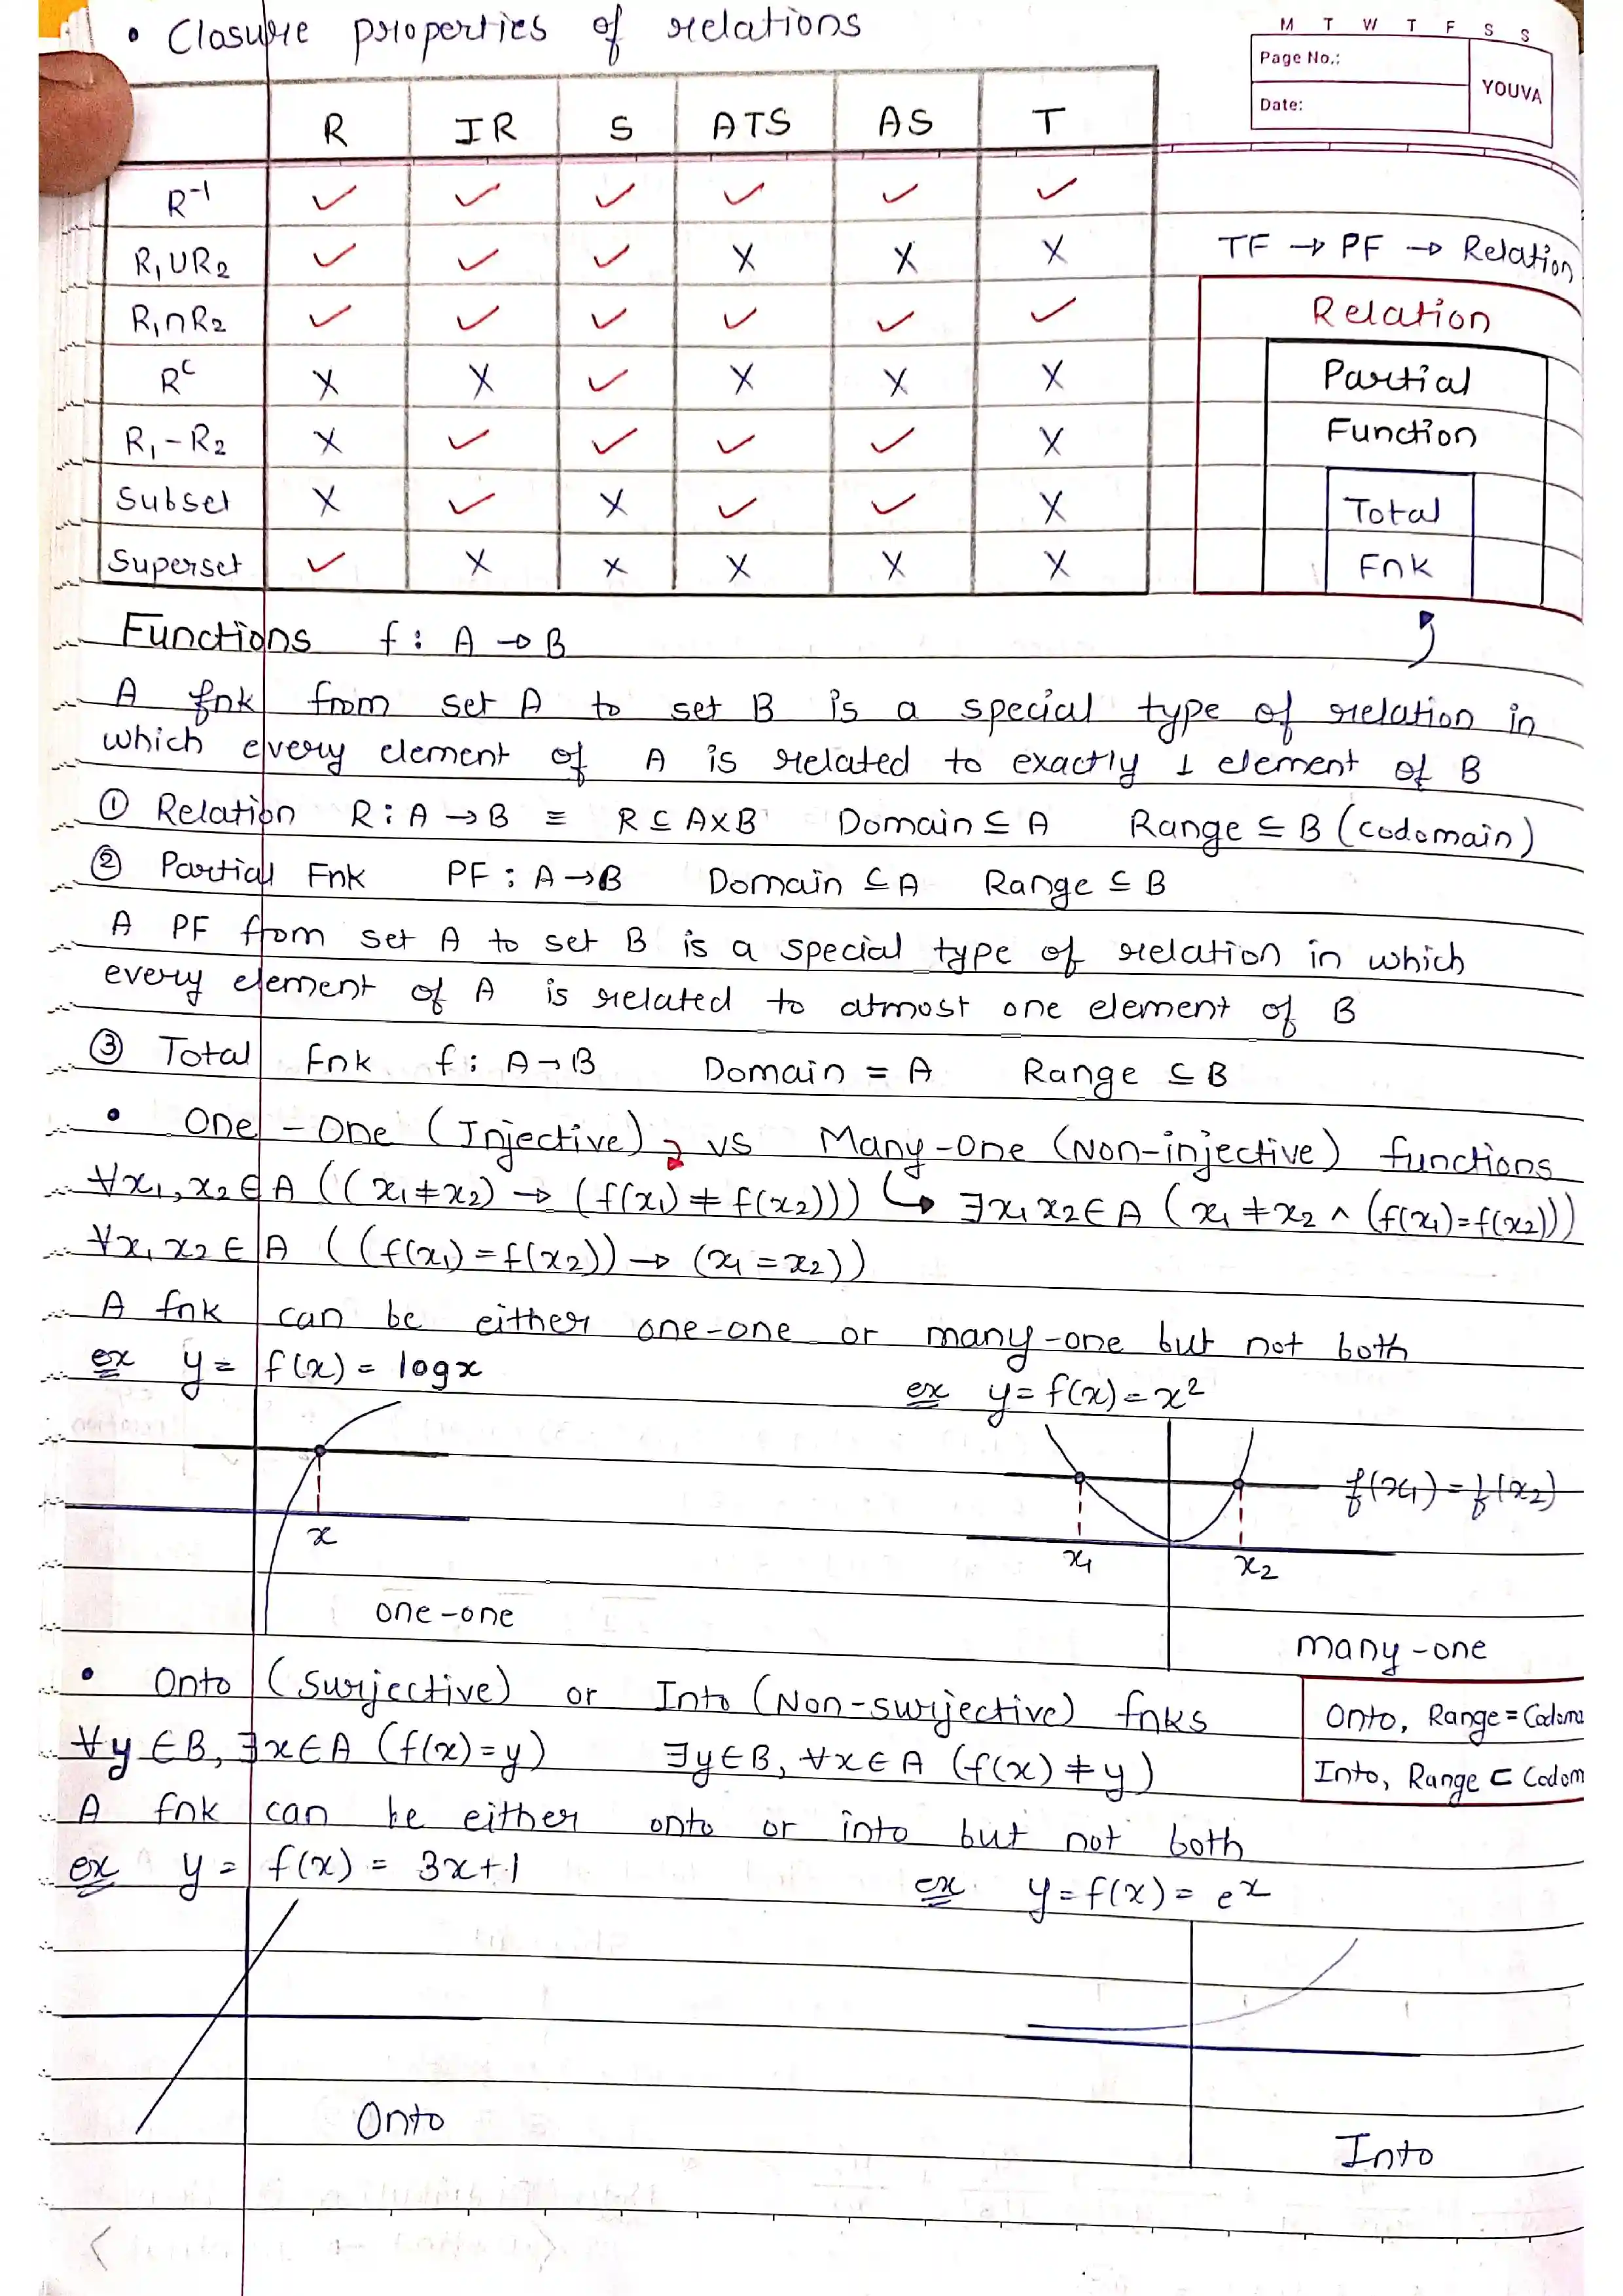 • Closure properties of relations
M T W T F S S
Page No.:
Date:
YOUVA
R IR S ATS AS T
R⁻¹ ✓ ✓ ✓ ✓ ✓ ✓
R₁∪R₂ ✓ ✓ ✓ X X X
R₁∩R₂ ✓ ✓ ✓ ✓ ✓ ✓
Rᶜ X X ✓ X X X
R₁-R₂ X ✓ ✓ ✓ ✓ X
Subset X ✓ X ✓ ✓ X
Superset ✓ X X X X X
TF → PF → Relation
Relation
Partial
Function
Total
Fnk
Functions f : A → B
A fnk from set A to set B is a special type of relation in
which every element of A is related to exactly 1 element of B
① Relation R : A → B ≡ R ⊆ A×B Domain ⊆ A Range ⊆ B (codomain)
② Partial Fnk PF : A → B Domain ⊆ A Range ⊆ B
A PF from set A to set B is a special type of relation in which
every element of A is related to atmost one element of B
③ Total Fnk f : A → B Domain = A Range ⊆ B
• One-One (Injective) vs Many-one (Non-injective) functions
∀x₁,x₂∈A ((x₁≠x₂) → (f(x₁) ≠ f(x₂))) ↳ ∃x₁ x₂∈A (x₁ ≠ x₂ ∧ (f(x₁)=f(x₂)))
∀x₁ x₂ ∈ A ((f(x₁) = f(x₂)) → (x₁ = x₂))
A fnk can be either one-one or many-one but not both
ex y = f(x) = logx
ex y = f(x) = x²
x
one-one
f(x₁) = f(x₂)
x₁ x₂
many-one
• Onto (Surjective) or Into (Non-surjective) fnks
Onto, Range = Codoma
∀y ∈ B, ∃x ∈ A (f(x) = y) ∃y ∈ B, ∀x ∈ A (f(x) ≠ y)
Into, Range ⊂ Codom
A fnk can be either onto or into but not both
ex y = f(x) = 3x+1
ex y = f(x) = eˣ
Onto
Into